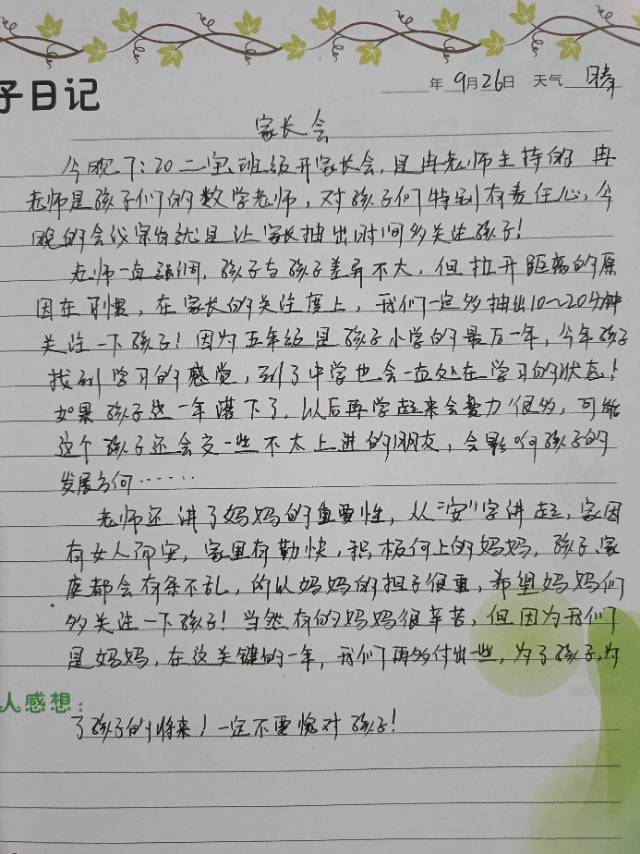 子日记
年 9月26日 天气 晴
家长会
今晚7:20二宝班级开家长会，是冉老师主持的 冉
老师是孩子们的数学老师，对孩子们特别有责任心，今
晚的会议宗旨就是让家长抽出时间多关注孩子！
老师一直强调，孩子与孩子差异不大，但拉开距离的原
因在习惯，在家长的关注度上，我们一定多抽出10～20分钟
关注一下孩子！因为五年级是孩子小学的最后一年，今年孩子
找到学习的感觉，到了中学也会一直处在学习的状态！
如果孩子这一年落下了，以后再学起来会费力很多，可能
这个孩子还会交一些不太上进的朋友，会影响孩子的
发展方向……
老师还讲了妈妈的重要性，从"安"字讲起，家因
有女人而安，家里有勤快，积极向上的妈妈，孩子、家
庭都会有条不乱，所以妈妈的担子很重，希望妈妈们
多关注一下孩子！当然有的妈妈很辛苦，但因为我们
是妈妈，在这关键的一年，我们再多付出一些，为了孩子，为
人感想：
了孩子的将来！一定不要愧对孩子！